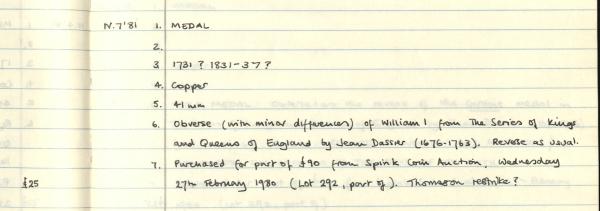 N.7'81 1. MEDAL
2.
3 1731? 1831-37?
4. Copper
5. 41mm
6. Obverse (with minor differences) of William I from The Series of Kings
and Queens of England by Jean Dassier (1676-1763). Reverse as usual.
7. Purchased for part of £90 from Spink Coin Auction, Wednesday
£25 27th February 1980 (Lot 292, part of). Thomason restrike?